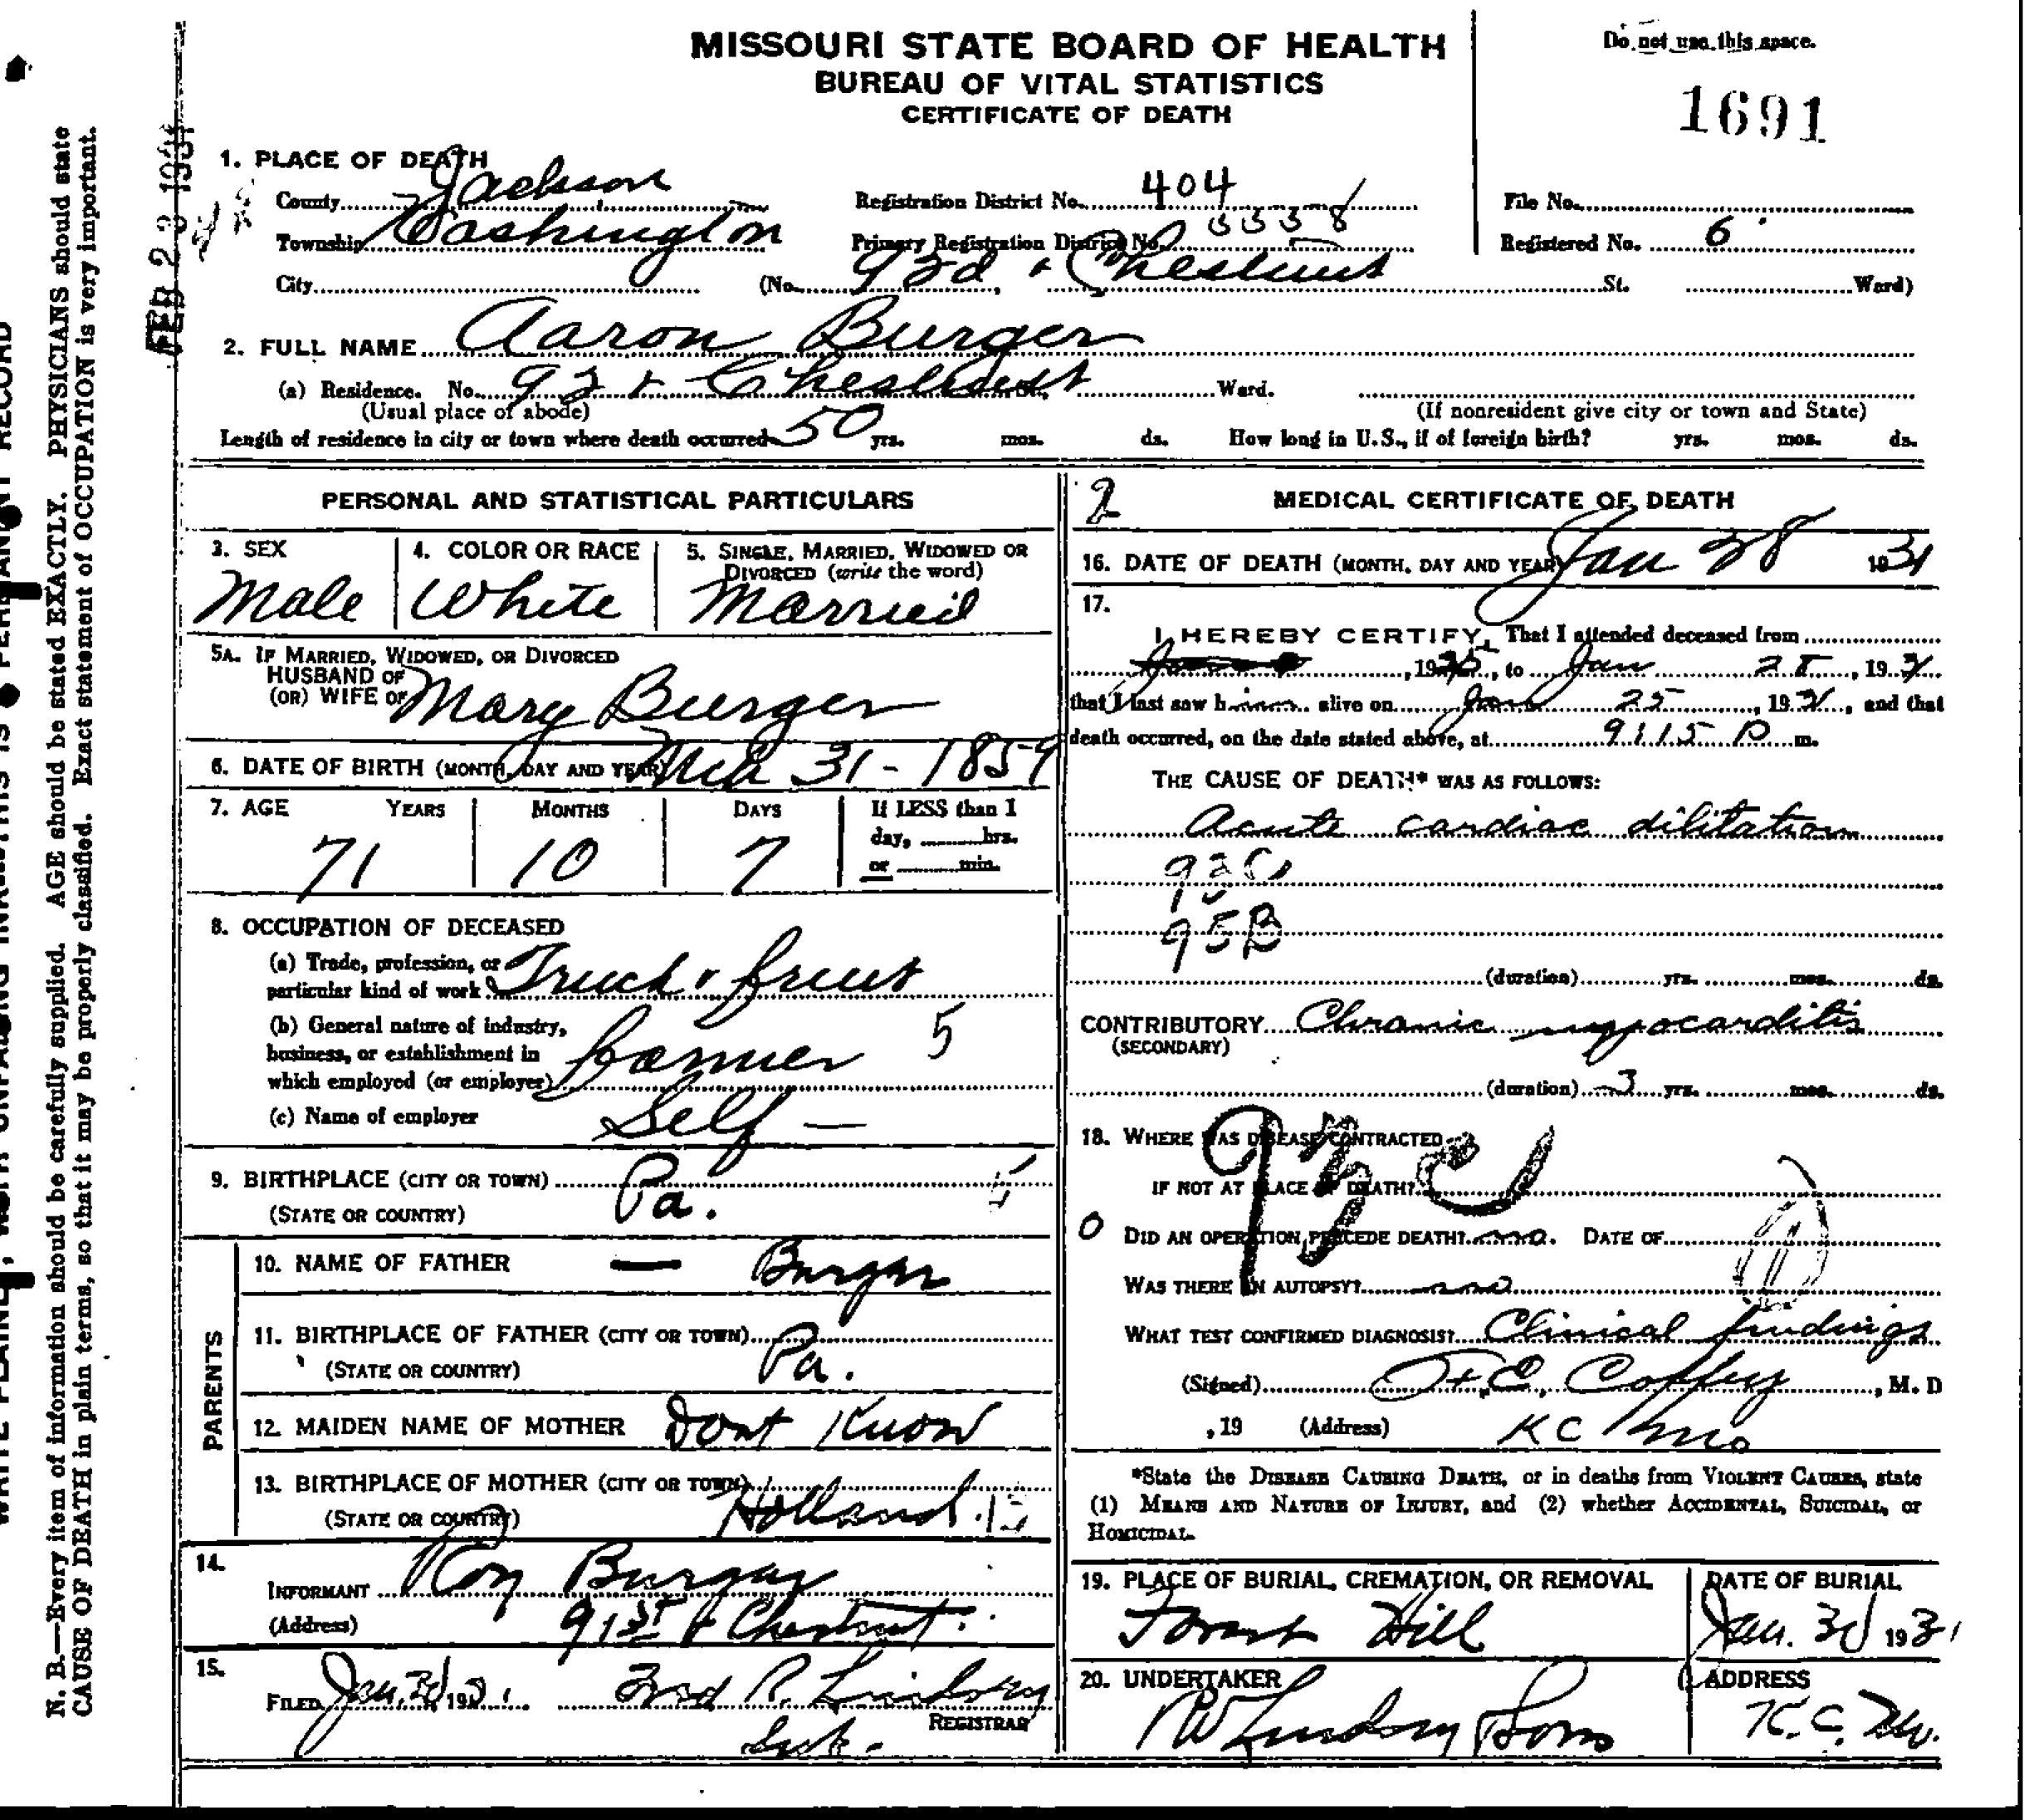 MISSOURI STATE BOARD OF HEALTH
BUREAU OF VITAL STATISTICS
CERTIFICATE OF DEATH
Do not use this space.
1691
FEB 23 1931
1. PLACE OF DEATH
County Jackson Registration District No. 404 File No.
Township Washington Primary Registration District No. Registered No. 6
City (No. 92d & Chestnut St. Ward)
2. FULL NAME Aaron Burger
(a) Residence. No. 92 & Chestnut St. Ward.
(Usual place of abode) (If nonresident give city or town and State)
Length of residence in city or town where death occurred 50 yrs. mos. ds. How long in U.S., if of foreign birth? yrs. mos. ds.
PERSONAL AND STATISTICAL PARTICULARS
3. SEX 4. COLOR OR RACE 5. SINGLE, MARRIED, WIDOWED OR
DIVORCED (write the word)
Male White Married
5A. IF MARRIED, WIDOWED, OR DIVORCED
HUSBAND OF
(OR) WIFE OF Mary Burger
6. DATE OF BIRTH (MONTH, DAY AND YEAR) Mch 31 - 1859
7. AGE YEARS MONTHS DAYS If LESS than 1
day, hrs.
or min.
71 10 7
8. OCCUPATION OF DECEASED
(a) Trade, profession, or
particular kind of work Truck & fruit
(b) General nature of industry,
business, or establishment in
which employed (or employer) farmer 5
(c) Name of employer Self —
9. BIRTHPLACE (CITY OR TOWN)
(STATE OR COUNTRY) Pa.
PARENTS
10. NAME OF FATHER — Burger
11. BIRTHPLACE OF FATHER (CITY OR TOWN)
(STATE OR COUNTRY) Pa.
12. MAIDEN NAME OF MOTHER Dont Know
13. BIRTHPLACE OF MOTHER (CITY OR TOWN)
(STATE OR COUNTRY) Holland
14.
INFORMANT Roy Burger
(Address) 91st & Chestnut.
15.
FILED Jan. 30 1931 Fred R. Lindsey
REGISTRAR
Sub.
2 MEDICAL CERTIFICATE OF DEATH
16. DATE OF DEATH (MONTH, DAY AND YEAR) Jan 28 1931
17.
I HEREBY CERTIFY, That I attended deceased from
, 19 , to Jan 28, 1931
that I last saw him alive on Jan 25, 1931, and that
death occurred, on the date stated above, at 9:15 P m.
THE CAUSE OF DEATH* WAS AS FOLLOWS:
Acute cardiac dilitation
95B
(duration) yrs. mos. ds.
CONTRIBUTORY Chronic myocarditis
(SECONDARY)
(duration) 3 yrs. mos. ds.
18. WHERE WAS DISEASE CONTRACTED
IF NOT AT PLACE OF DEATH?
0 DID AN OPERATION PRECEDE DEATH? no. DATE OF
WAS THERE AN AUTOPSY? no
WHAT TEST CONFIRMED DIAGNOSIS? Clinical findings
(Signed) Coffey, M. D
, 19 (Address) KC Mo
*State the DISEASE CAUSING DEATH, or in deaths from VIOLENT CAUSES, state
(1) MEANS AND NATURE OF INJURY, and (2) whether ACCIDENTAL, SUICIDAL, or
HOMICIDAL.
19. PLACE OF BURIAL, CREMATION, OR REMOVAL DATE OF BURIAL
Forest Hill Jan. 30 1931
20. UNDERTAKER ADDRESS
RW Lindsey & Sons K.C. Mo.
N. B.—Every item of information should be carefully supplied. AGE should be stated EXACTLY. PHYSICIANS should state
CAUSE OF DEATH in plain terms, so that it may be properly classified. Exact statement of OCCUPATION is very important.